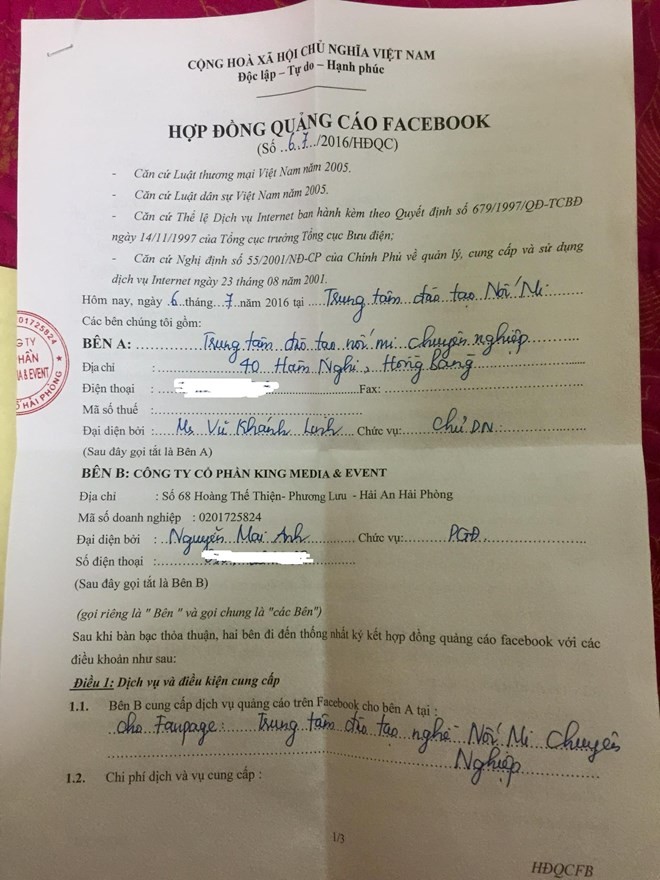 CỘNG HOÀ XÃ HỘI CHỦ NGHĨA VIỆT NAM
Độc lập – Tự do – Hạnh phúc
HỢP ĐỒNG QUẢNG CÁO FACEBOOK
(Số ..6.7../2016/HĐQC)
- Căn cứ Luật thương mại Việt Nam năm 2005.
- Căn cứ Luật dân sự Việt Nam năm 2005.
- Căn cứ Thể lệ Dịch vụ Internet ban hành kèm theo Quyết định số 679/1997/QĐ-TCBĐ
ngày 14/11/1997 của Tổng cục trưởng Tổng cục Bưu điện;
- Căn cứ Nghị định số 55/2001/NĐ-CP của Chính Phủ về quản lý, cung cấp và sử dụng
dịch vụ Internet ngày 23 tháng 08 năm 2001.
Hôm nay, ngày 6 tháng 7 năm 2016 tại Trung tâm đào tạo Nối Mi
Các bên chúng tôi gồm:
BÊN A: Trung tâm đào tạo nối mi chuyên nghiệp
Địa chỉ : 40 Hàm Nghi, Hồng Bàng
Điện thoại : Fax:
Mã số thuế :
Đại diện bởi : Ms Vũ Khánh Linh Chức vụ: Chủ DN
(Sau đây gọi tắt là Bên A)
BÊN B: CÔNG TY CỔ PHẦN KING MEDIA & EVENT
Địa chỉ : Số 68 Hoàng Thế Thiện- Phương Lưu - Hải An Hải Phòng
Mã số doanh nghiệp : 0201725824
Đại diện bởi : Nguyễn Mai Anh Chức vụ: PGĐ.
Số điện thoại :
(Sau đây gọi tắt là Bên B)
(gọi riêng là " Bên " và gọi chung là "các Bên")
Sau khi bàn bạc thỏa thuận, hai bên đi đến thống nhất ký kết hợp đồng quảng cáo facebook với các
điều khoản như sau:
Điều 1: Dịch vụ và điều kiện cung cấp
1.1. Bên B cung cấp dịch vụ quảng cáo trên Facebook cho bên A tại :
cho Fanpage: Trung tâm đào tạo nghề Nối Mi Chuyên
Nghiệp
1.2. Chi phí dịch và vụ cung cấp :
1/3
HĐQCFB
0201725824
G TY
PHẦN
IA & EVENT
HẢI PHÒNG